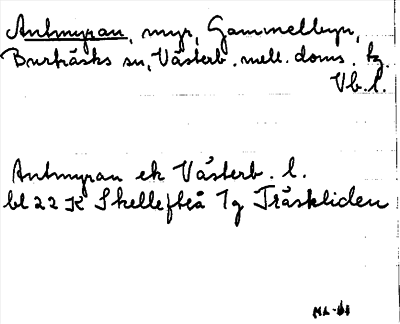 Antmyran, myr, Gammelbyn,
Burträsks sn, Västerb. mell. doms. tg.
Vb. l.
Antmyran ek Västerb. l.
bl 22 K Skellefteå 7g Träskliden